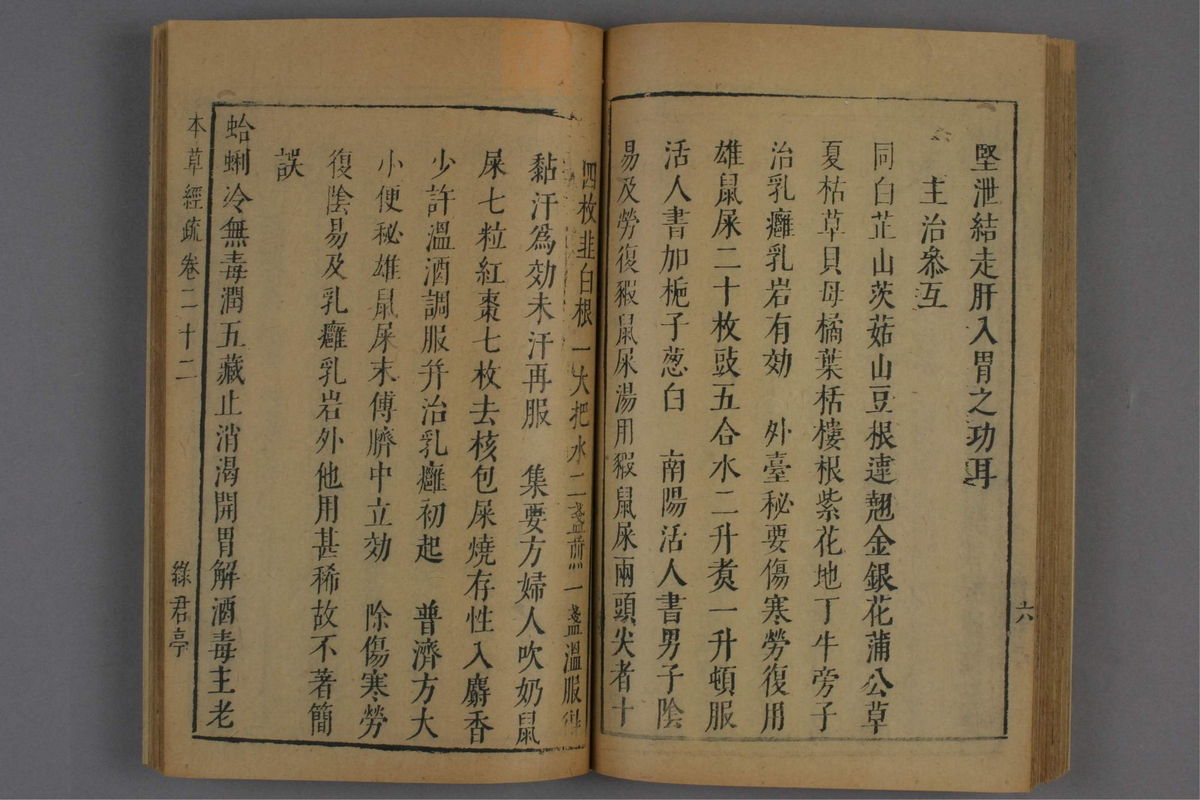 堅泄結走肝入胃之功耳
主治叅互
同白芷山茨菇山豆根連翹金銀花蒲公草
夏枯草貝母橘葉栝樓根紫花地丁牛旁子
治乳癰乳岩有効　外臺秘要傷寒勞復用
雄鼠屎二十枚豉五合水二升煑一升頓服
活人書加梔子葱白　南陽活人書男子陰
易及勞復豭鼠屎湯用豭鼠屎兩頭尖者十
六
四枚韭白根一大把水二盞煎一盞溫服得
黏汗爲効未汗再服　集要方婦人吹奶鼠
屎七粒紅棗七枚去核包屎燒存性入麝香
少許溫酒調服幷治乳癰初起　普濟方大
小便秘雄鼠屎末傅臍中立効　除傷寒勞
復陰易及乳癰乳岩外他用甚稀故不著簡
誤
蛤蜊冷無毒潤五藏止消渴開胃解酒毒主老
本草經疏卷二十二
綠君亭